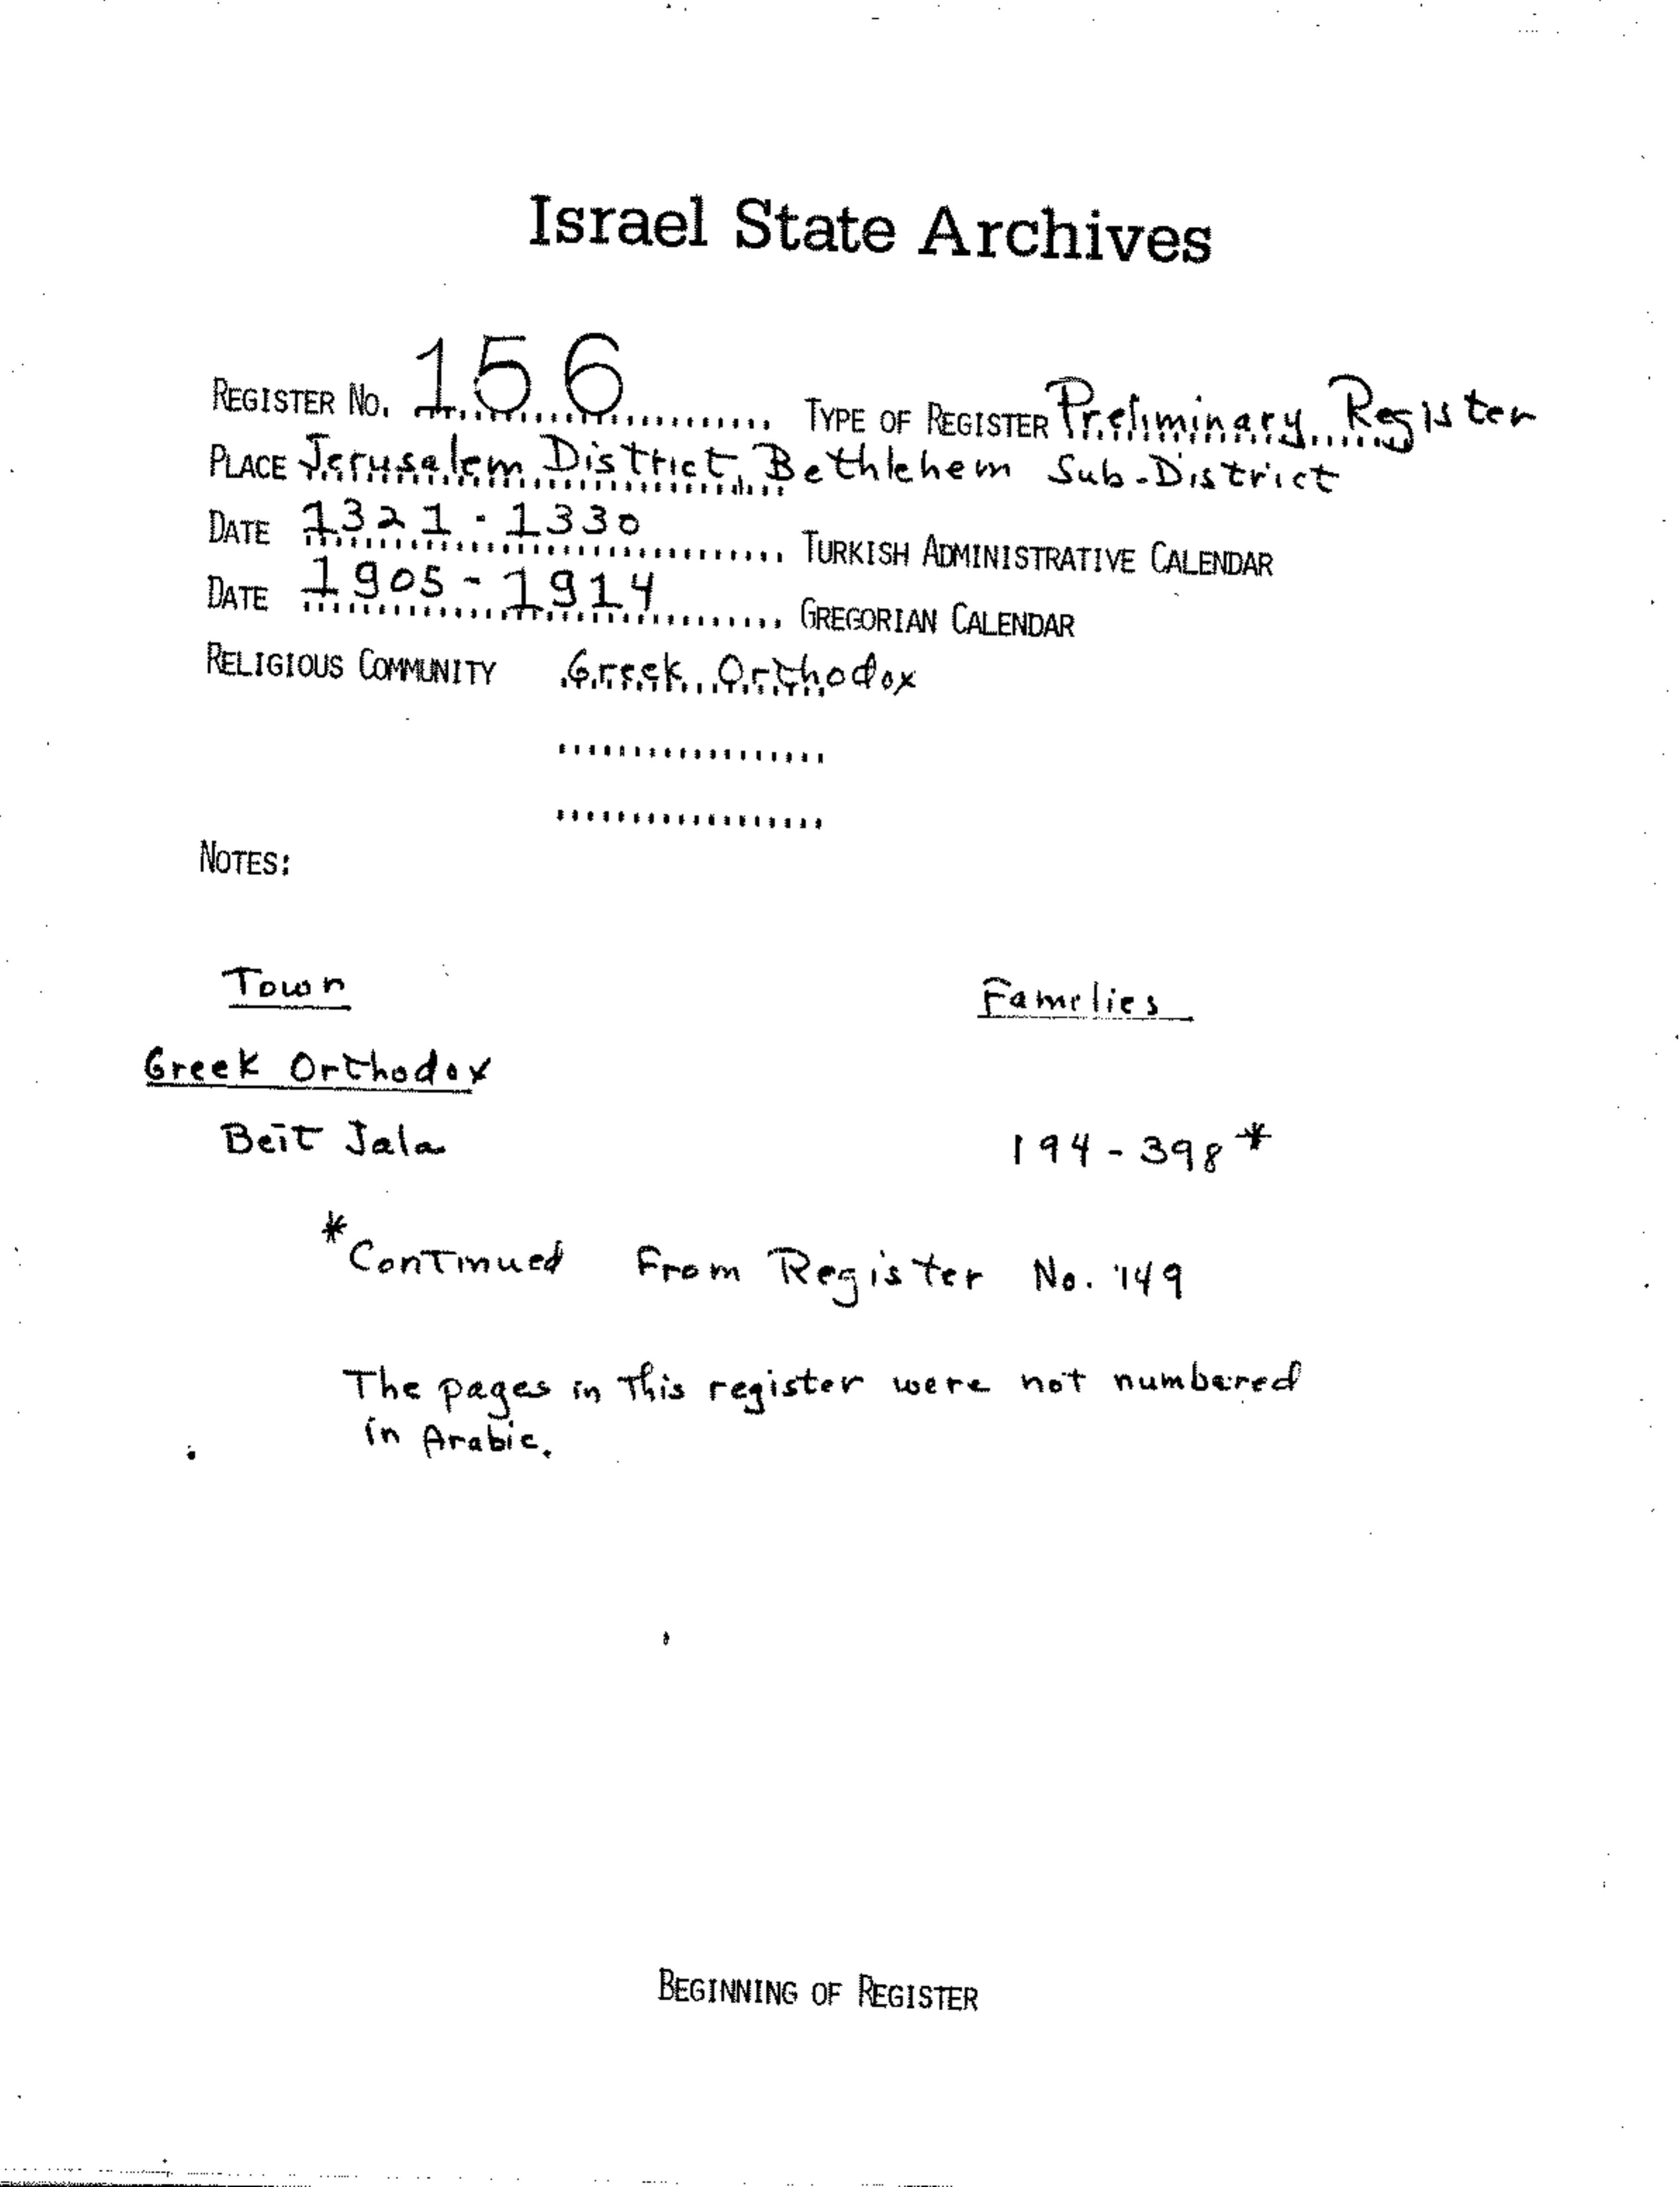 Israel State Archives
REGISTER No. 156 TYPE OF REGISTER Preliminary Register
PLACE Jerusalem District, Bethlehem Sub-District
DATE 1321-1330 TURKISH ADMINISTRATIVE CALENDAR
DATE 1905-1914 GREGORIAN CALENDAR
RELIGIOUS COMMUNITY Greek Orthodox
NOTES:
Town Famelies
Greek Orthodox
Beit Jala 194-398*
*Continued From Register No. 149
The pages in this register were not numbered
in Arabic.
BEGINNING OF REGISTER